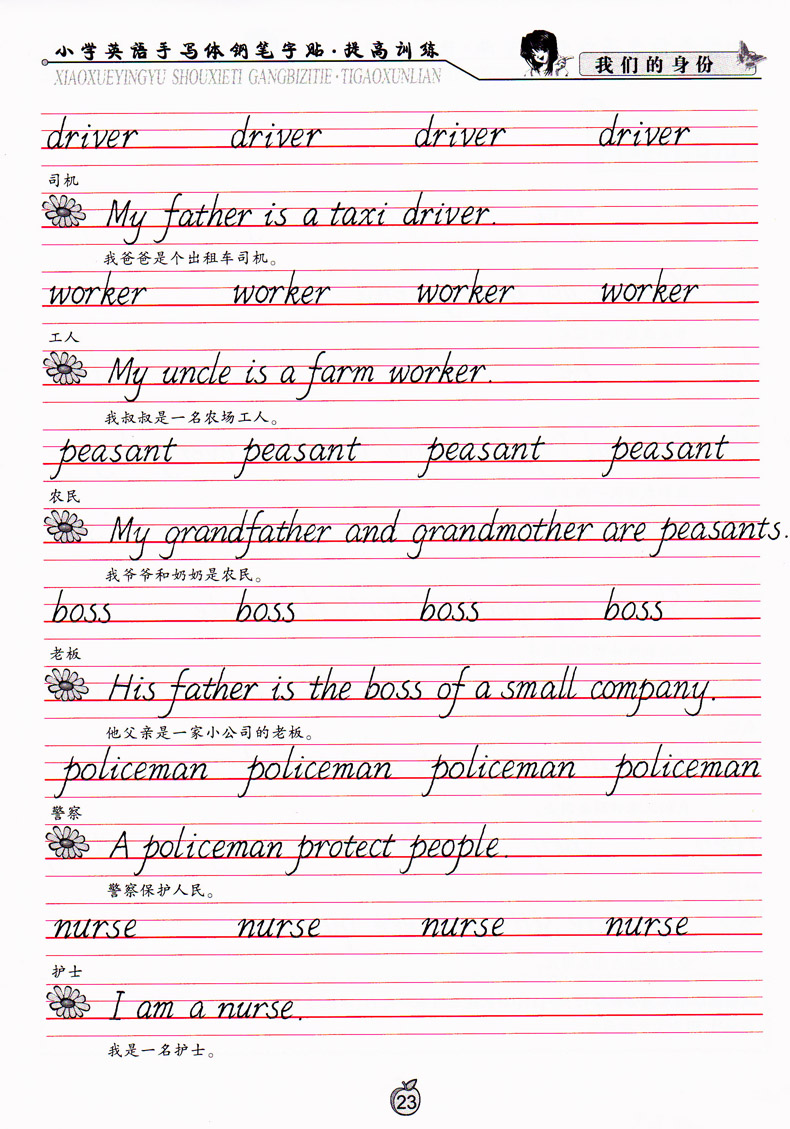 小学英语手写体钢笔字贴·提高训练
XIAOXUEYINGYU SHOUXIETI GANGBIZITIE·TIGAOXUNLIAN
我们的身份
driver driver driver driver
司机
My father is a taxi driver.
我爸爸是个出租车司机。
worker worker worker worker
工人
My uncle is a farm worker.
我叔叔是一名农场工人。
peasant peasant peasant peasant
农民
My grandfather and grandmother are peasants.
我爷爷和奶奶是农民。
boss boss boss boss
老板
His father is the boss of a small company.
他父亲是一家小公司的老板。
policeman policeman policeman policeman
警察
A policeman protect people.
警察保护人民。
nurse nurse nurse nurse
护士
I am a nurse.
我是一名护士。
23